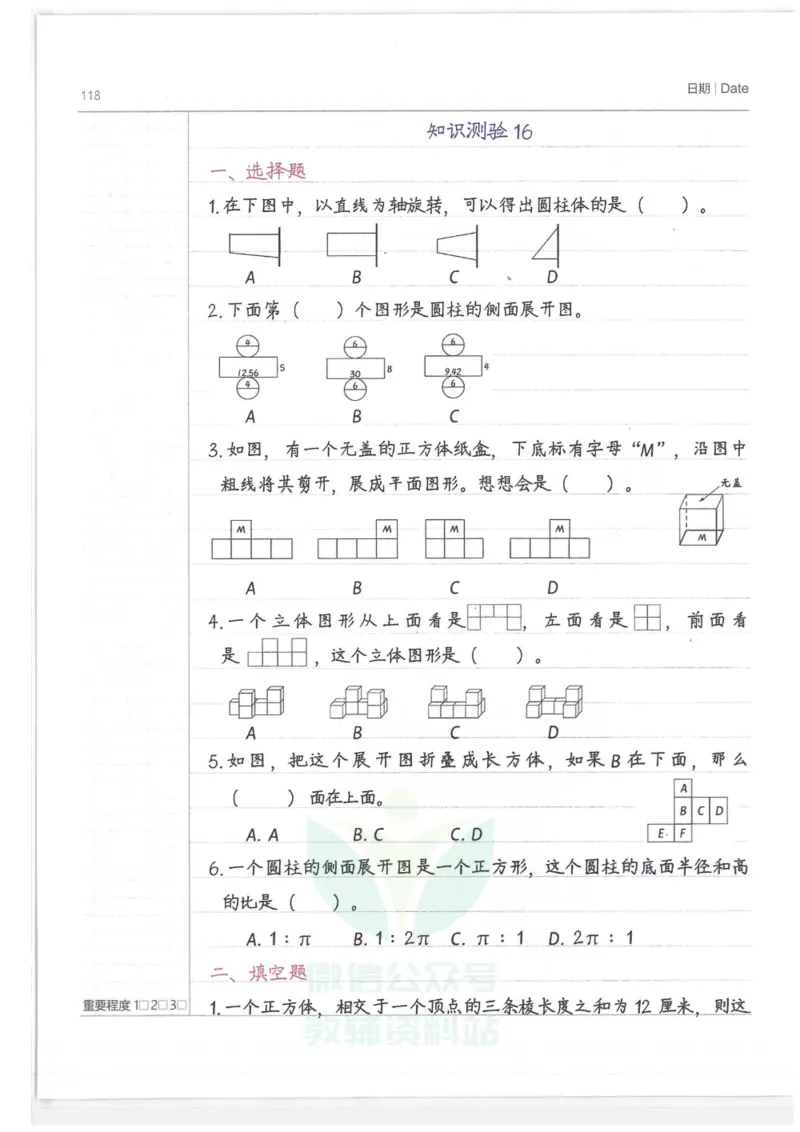 118
日期 | Date
知识测验 16
一、选择题
1.在下图中，以直线为轴旋转，可以得出圆柱体的是（　　）。
A B C D
2.下面第（　　）个图形是圆柱的侧面展开图。
4 6 6
12.56 5 30 8 9.42 4
4 6 6
A B C
3.如图，有一个无盖的正方体纸盒，下底标有字母“M”，沿图中
粗线将其剪开，展成平面图形。想想会是（　　）。
无盖
M
M M M M
A B C D
4.一个立体图形从上面看是，左面看是，前面看
是，这个立体图形是（　　）。
A B C D
5.如图，把这个展开图折叠成长方体，如果 B 在下面，那么
（　　）面在上面。
A
B C D
E F
A. A B. C C. D
6.一个圆柱的侧面展开图是一个正方形，这个圆柱的底面半径和高
的比是（　　）。
A. 1：π B. 1：2π C. π：1 D. 2π：1
二、填空题
1.一个正方体，相交于一个顶点的三条棱长度之和为 12 厘米，则这
重要程度 1□ 2□ 3□
微信公众号
教辅资料站